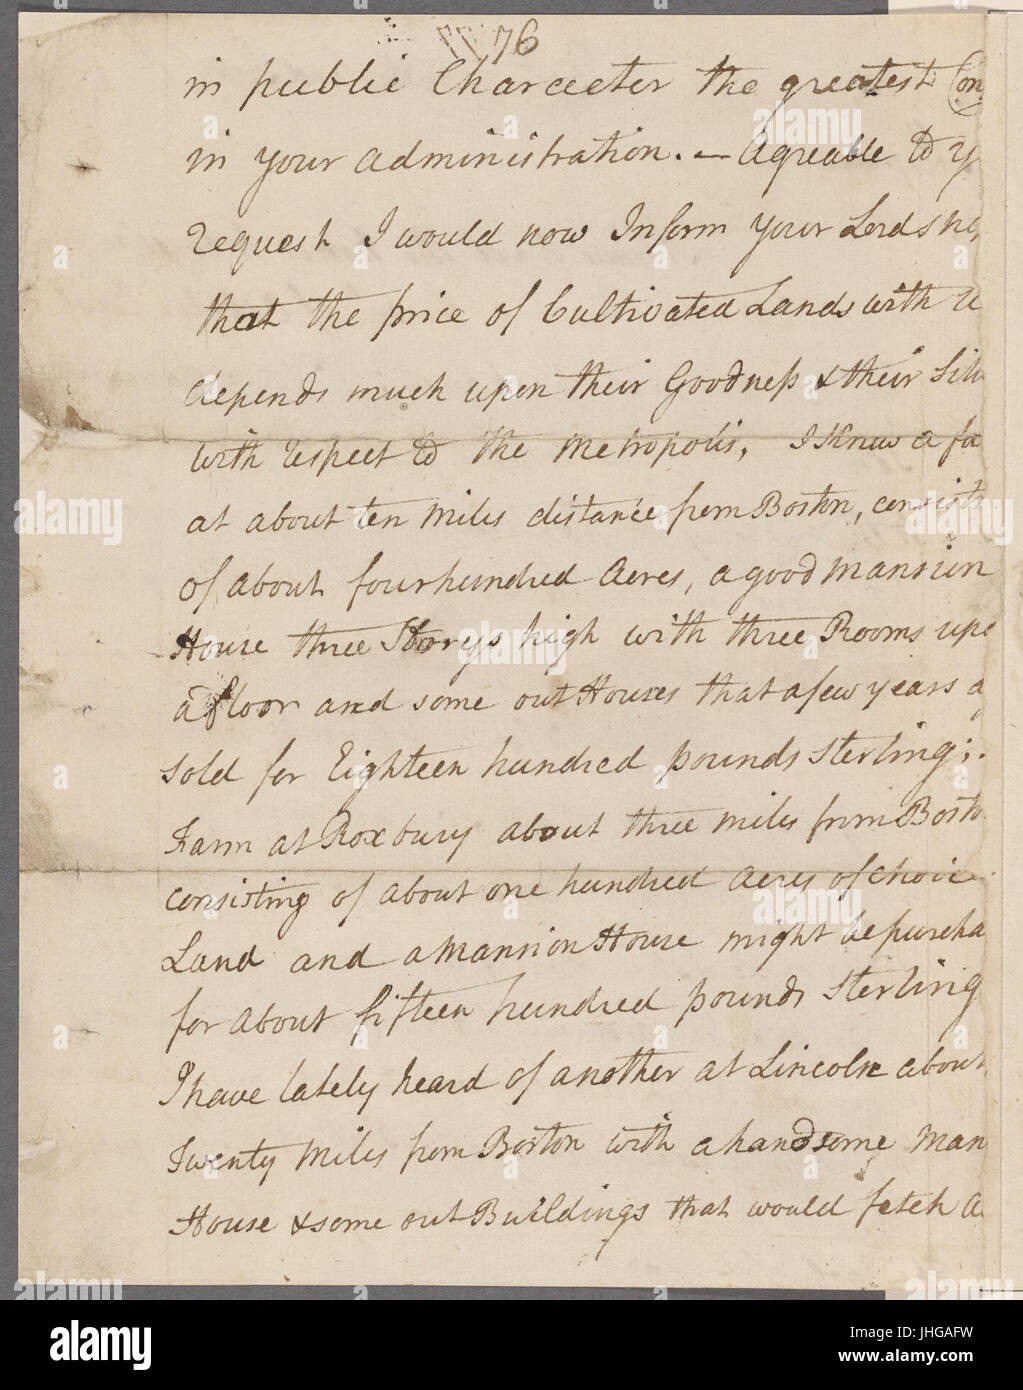 76
in public Character the greatest Con
in your administration. — Agreable to y
request I would now Inform your Lordshi
that the price of Cultivated Lands with u
depends much upon their Goodness & their Situ
with respect to the Metropolis, I Knew a fa
at about ten Miles distance from Boston, consist
of about four hundred Acres, a good Mansion
House three Storys high with three Rooms upo
a floor and some out Houses that a few years a
sold for Eighteen hundred pounds Sterling;
Farm at Roxbury about three miles from Bosto
consisting of about one hundred Acres of choice
Land and a Mansion House might be purcha
for about fifteen hundred pounds Sterling
I have lately heard of another at Lincoln about
Twenty Miles from Boston with a handsome Man
House & some out Buildings that would fetch a
alamy stock photo
JHGAFW
www.alamy.com